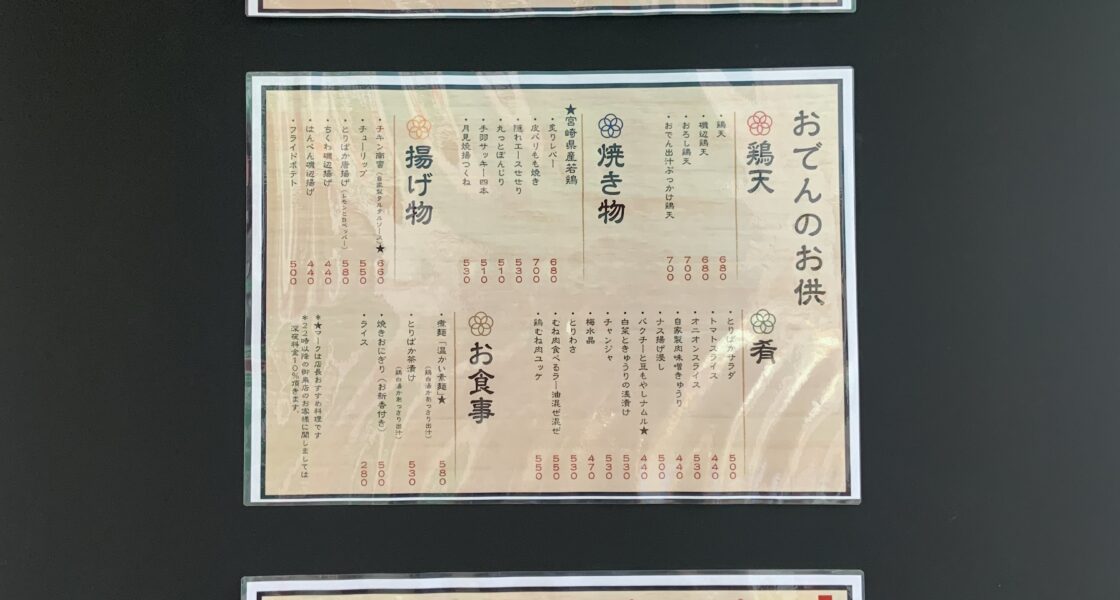 おでんのお供
鶏天
・鶏天 680
・磯辺鶏天 680
・おろし鶏天 700
・おでん出汁ぶっかけ鶏天 700
焼き物
★宮崎県産若鶏
・炙りレバー 680
・皮パリもも焼き 700
・隠れエースせせり 530
・丸っとぼんじり 510
・手羽サッキー四本 510
・月見焼揚つくね 530
揚げ物
・チキン南蛮(自家製タルタルソース)★ 660
・チューリップ 550
・とりばか唐揚げ(レモンと白ペッパー) 580
・ちくわ磯辺揚げ 440
・はんぺん磯辺揚げ 440
・フライドポテト 500
肴
・とりばかサラダ 500
・トマトスライス 440
・オニオンスライス 530
・自家製肉味噌きゅうり 440
・ナス揚げ浸し 500
・パクチーと豆もやしナムル★ 440
・白菜ときゅうりの浅漬け 530
・チャンジャ 530
・梅水晶 470
・とりわさ 530
・むね肉食べるラー油混ぜ混ぜ 550
・鶏むね肉ユッケ 550
お食事
・煮麺「温かい素麺」★ 580
(鶏白湯かあっさり出汁)
・とりばか茶漬け 530
(鶏白湯かあっさり出汁)
・焼きおにぎり(お新香付き) 500
・ライス 280
*★マークは店長おすすめ料理です
*22時以降の御来店のお客様に関しましては
深夜料金10%頂きます。